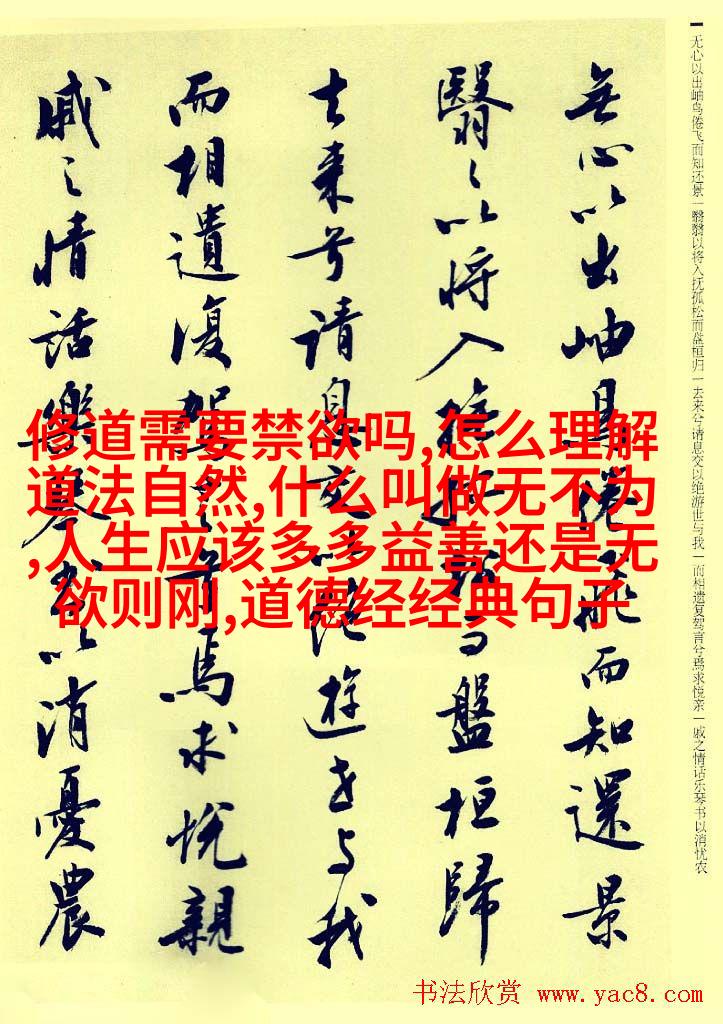 无心以出岫鸟倦飞而知还景|翳翳以将入抚孤松而盘桓归|去来兮请息交以绝游世与我|而相遗复驾言兮焉求悦亲|戚之情话乐琴书以消忧农
無心以出岫鳥倦飛而知還景
翳々以將入撫孤松而盤桓歸
去来兮請息交以絶遊世与我
而相遺復駕言兮焉求悅親
戚之情話樂琴書以消憂農
修道需要禁欲吗,怎么理解
道法自然,什么叫做无不为
,人生应该多多益善还是无
欲则刚,道德经经典句子
书法欣赏 www.yac8.com